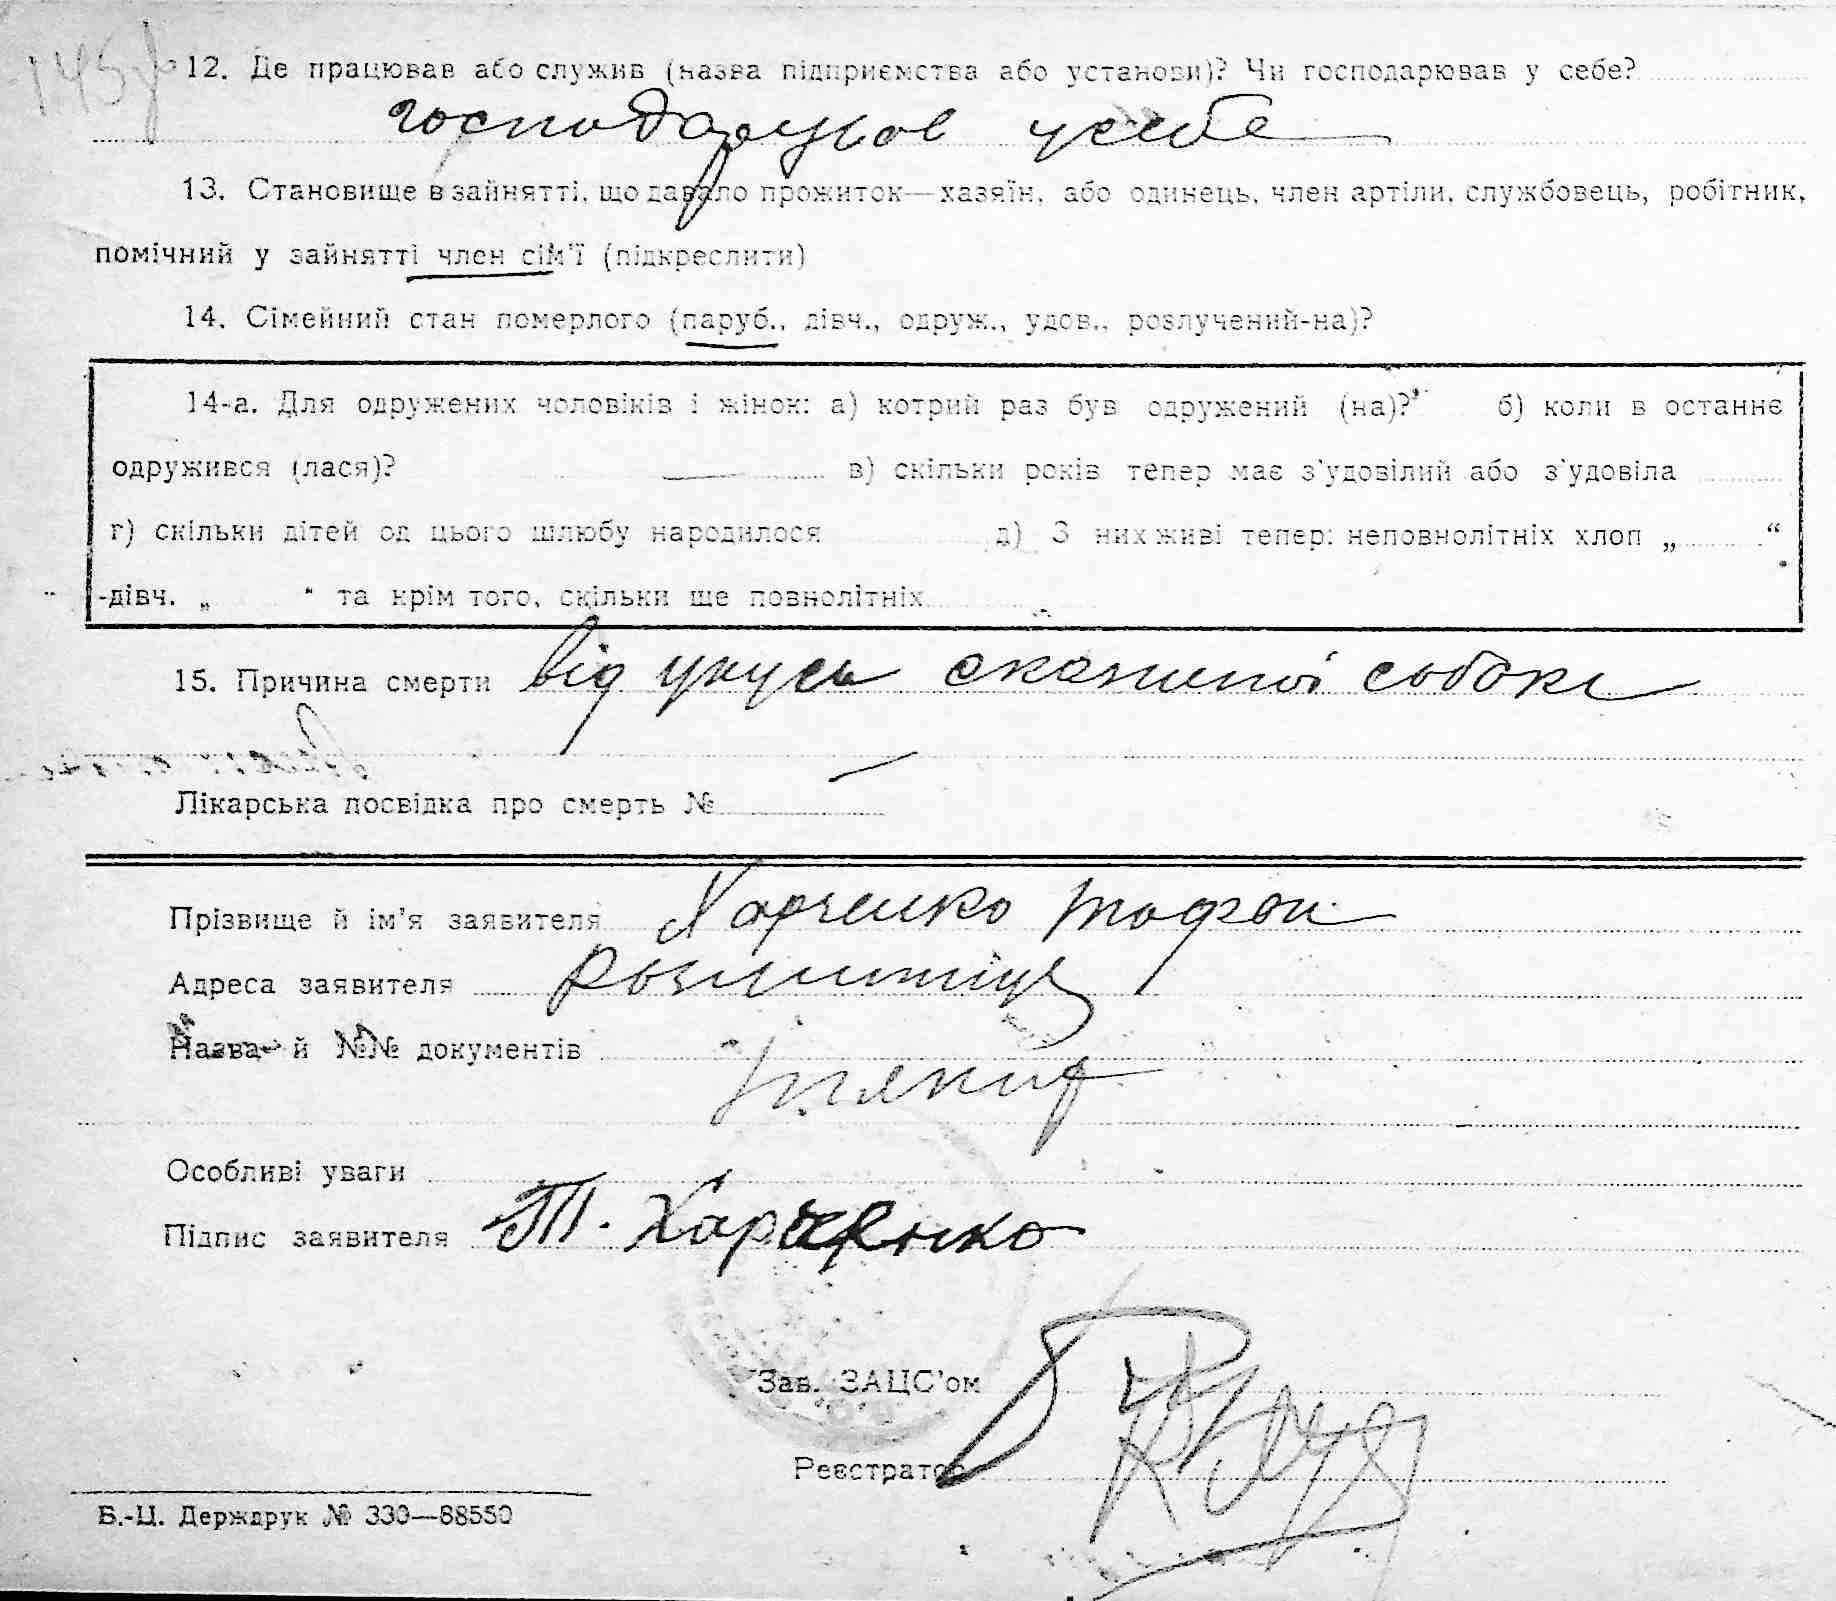 145
12. Де працював або служив (назва підприємства або установи)? Чи господарював у себе?
господарував у себе
13. Становище в зайнятті, що давало прожиток—хазяїн, або одинець, член артіли, службовець, робітник,
помічний у зайнятті член сім'ї (підкреслити)
14. Сімейний стан померлого (паруб., дівч., одруж., удов., розлучений-на)?
14-а. Для одружених чоловіків і жінок: а) котрий раз був одружений (на)? б) коли в останнє
одружився (лася)? — в) скільки років тепер має з'удовілий або з'удовіла
г) скільки дітей од цього шлюбу народилося д) З них живі тепер: неповнолітніх хлоп „ “
-дівч. „ “ та крім того, скільки ще повнолітніх
15. Причина смерти від укуса скаженої собаки
Лікарська посвідка про смерть № —
Прізвище й ім'я заявителя Харченко
Адреса заявителя
Назва й №№ документів
Особливі уваги
Підпис заявителя Т. Харченко
Зав. ЗАЦС'ом
Реєстратор
Б.-Ц. Держдрук № 330—88550